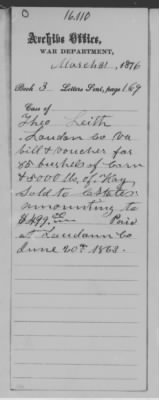 O 16.110
Archive Office,
WAR DEPARTMENT,
March 31, 1876
Book 3 Letters Sent, page 169
Case of
Theo Leith
Loudon Co Va
bill & voucher for
85 bushels of Corn
& 5000 lbs. of Hay
Sold to
amounting to
$499. Paid
at Loudann Co
June 20th 1863.